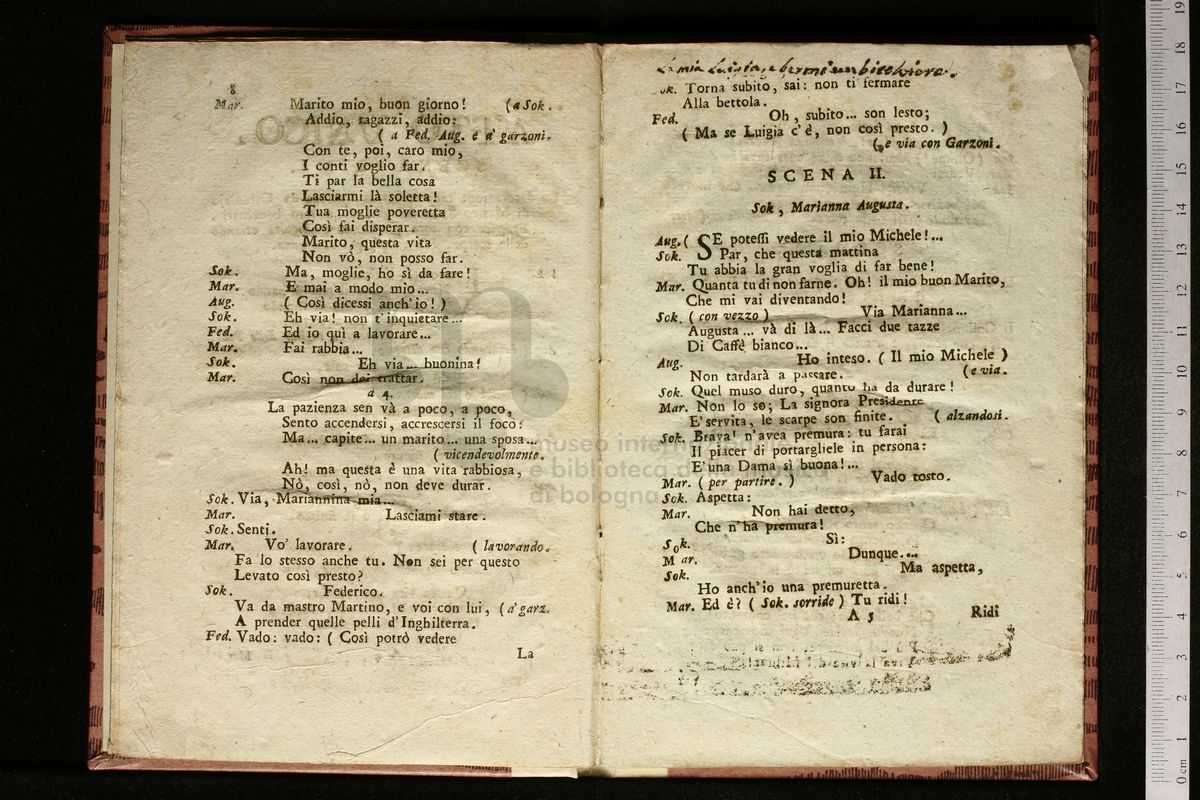 8
Mar. Marito mio, buon giorno! (a Sok.
Addio, ragazzi, addio:
( a Fed. Aug. e a' garzoni.
Con te, poi, caro mio,
I conti voglio far.
Ti par la bella cosa
Lasciarmi là soletta!
Tua moglie poveretta
Così fai disperar.
Marito, questa vita
Non vò, non posso far.
Sok. Ma, moglie, ho sì da fare!
Mar. E mai a modo mio...
Aug. ( Così dicessi anch'io! )
Sok. Eh via! non t'inquietare...
Fed. Ed io quì a lavorare...
Mar. Fai rabbia...
Sok. Eh via... buonina!
Mar. Così non dei trattar.
a 4.
La pazienza sen và a poco, a poco,
Sento accendersi, accrescersi il foco:
Ma... capite... un marito... una sposa...
( vicendevolmente.
Ah! ma questa è una vita rabbiosa,
Nò, così, nò, non deve durar.
Sok. Via, Mariannina mia...
Mar. Lasciami stare.
Sok. Senti.
Mar. Vo' lavorare. ( lavorando.
Fa lo stesso anche tu. Non sei per questo
Levato così presto?
Sok. Federico.
Va da mastro Martino, e voi con lui, (a' garz.
A prender quelle pelli d'Inghilterra.
Fed. Vado: vado: ( Così potrò vedere
La
La mia Luigia, e bermi un bicchiere.
ok. Torna subito, sai: non ti fermare
Alla bettola.
Fed. Oh, subito... son lesto;
( Ma se Luigia c'è, non così presto. )
(e via con Garzoni.
SCENA II.
Sok, Marianna Augusta.
Aug. ( SE potessi vedere il mio Michele!...
Sok. Par, che questa mattina
Tu abbia la gran voglia di far bene!
Mar. Quanta tu di non farne. Oh! il mio buon Marito,
Che mi vai diventando!
Sok. ( con vezzo ) Via Marianna...
Augusta... và di là... Facci due tazze
Di Caffè bianco...
Aug. Ho inteso. ( Il mio Michele )
Non tardarà a passare. (e via.
Sok. Quel muso duro, quanto ha da durare!
Mar. Non lo so; La signora Presidente
E' servita, le scarpe son finite. ( alzandosi.
Sok. Brava! n'avea premura: tu farai
Il piacer di portargliele in persona:
E' una Dama sì buona!...
Mar. ( per partire. ) Vado tosto.
Sok. Aspetta:
Mar. Non hai detto,
Che n'ha premura!
Sok. Sì:
Mar. Dunque...
Sok. Ma aspetta,
Ho anch'io una premuretta.
Mar. Ed è? ( Sok. sorride ) Tu ridi!
A 5 Ridi
museo internazionale
e biblioteca della musica
di bologna
19
18
17
16
15
14
13
12
11
10
9
8
7
6
5
4
3
2
1
0 cm